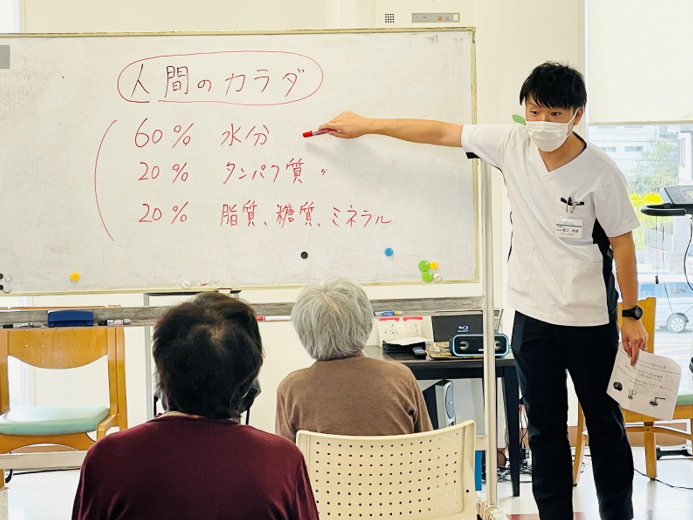 人間のカラダ
60% 水分
20% タンパク質
20% 脂質、糖質、ミネラル